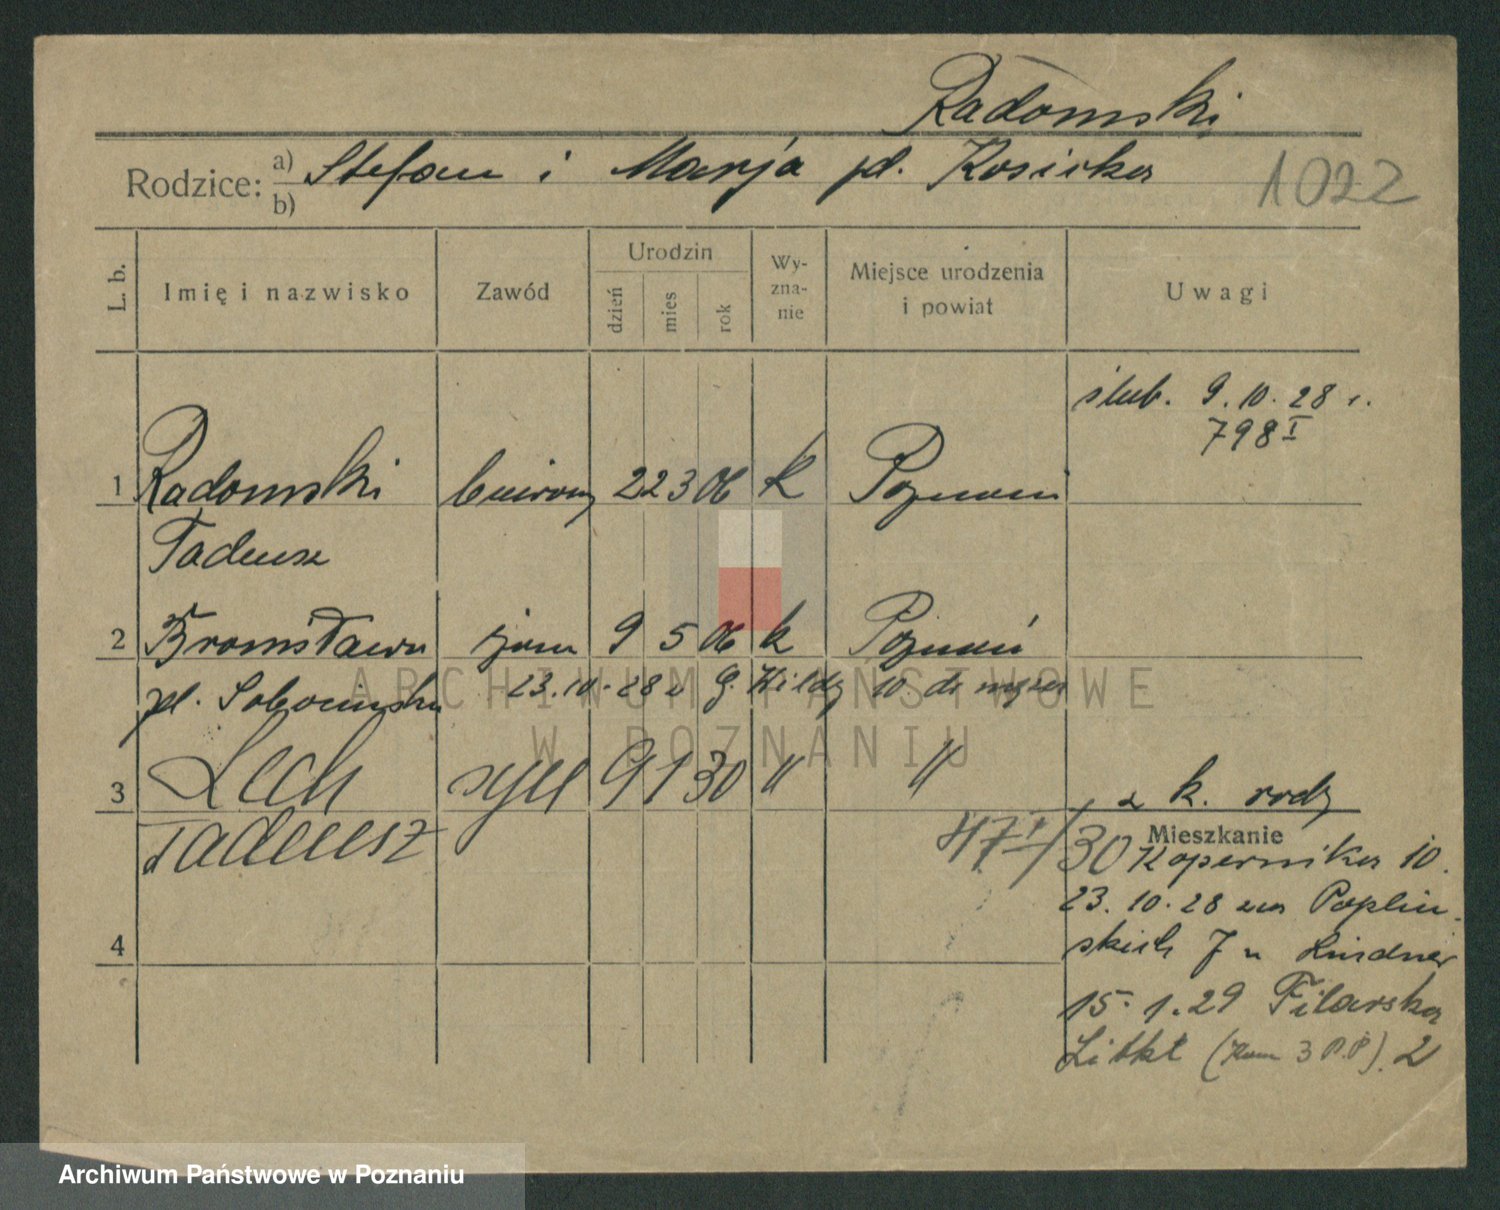 Radomski
Rodzice: a) Stefan i Marja pd. Kosicka
b)
1022
L. b.
Imię i nazwisko
Zawód
Urodzin
dzień
mies
rok
Wy-
zna-
nie
Miejsce urodzenia
i powiat
Uwagi
ślub. 9.10.28 r.
798 I
1 Radomski biurowy 22 3 06 k Poznań
Tadeusz
2 Bronisława żona 9 5 06 k Poznań
23.10.28 z G. Wildy 10. do męża
3 Lech syn 9 1 30 " "
Tadeusz
z k. rodz
Mieszkanie
30 Kopernika 10.
23.10.28 na Poplin-
skich 7 u Lindner
15.1.29 Filarska
2
4
ARCHIWUM PAŃSTWOWE
W POZNANIU
Archiwum Państwowe w Poznaniu